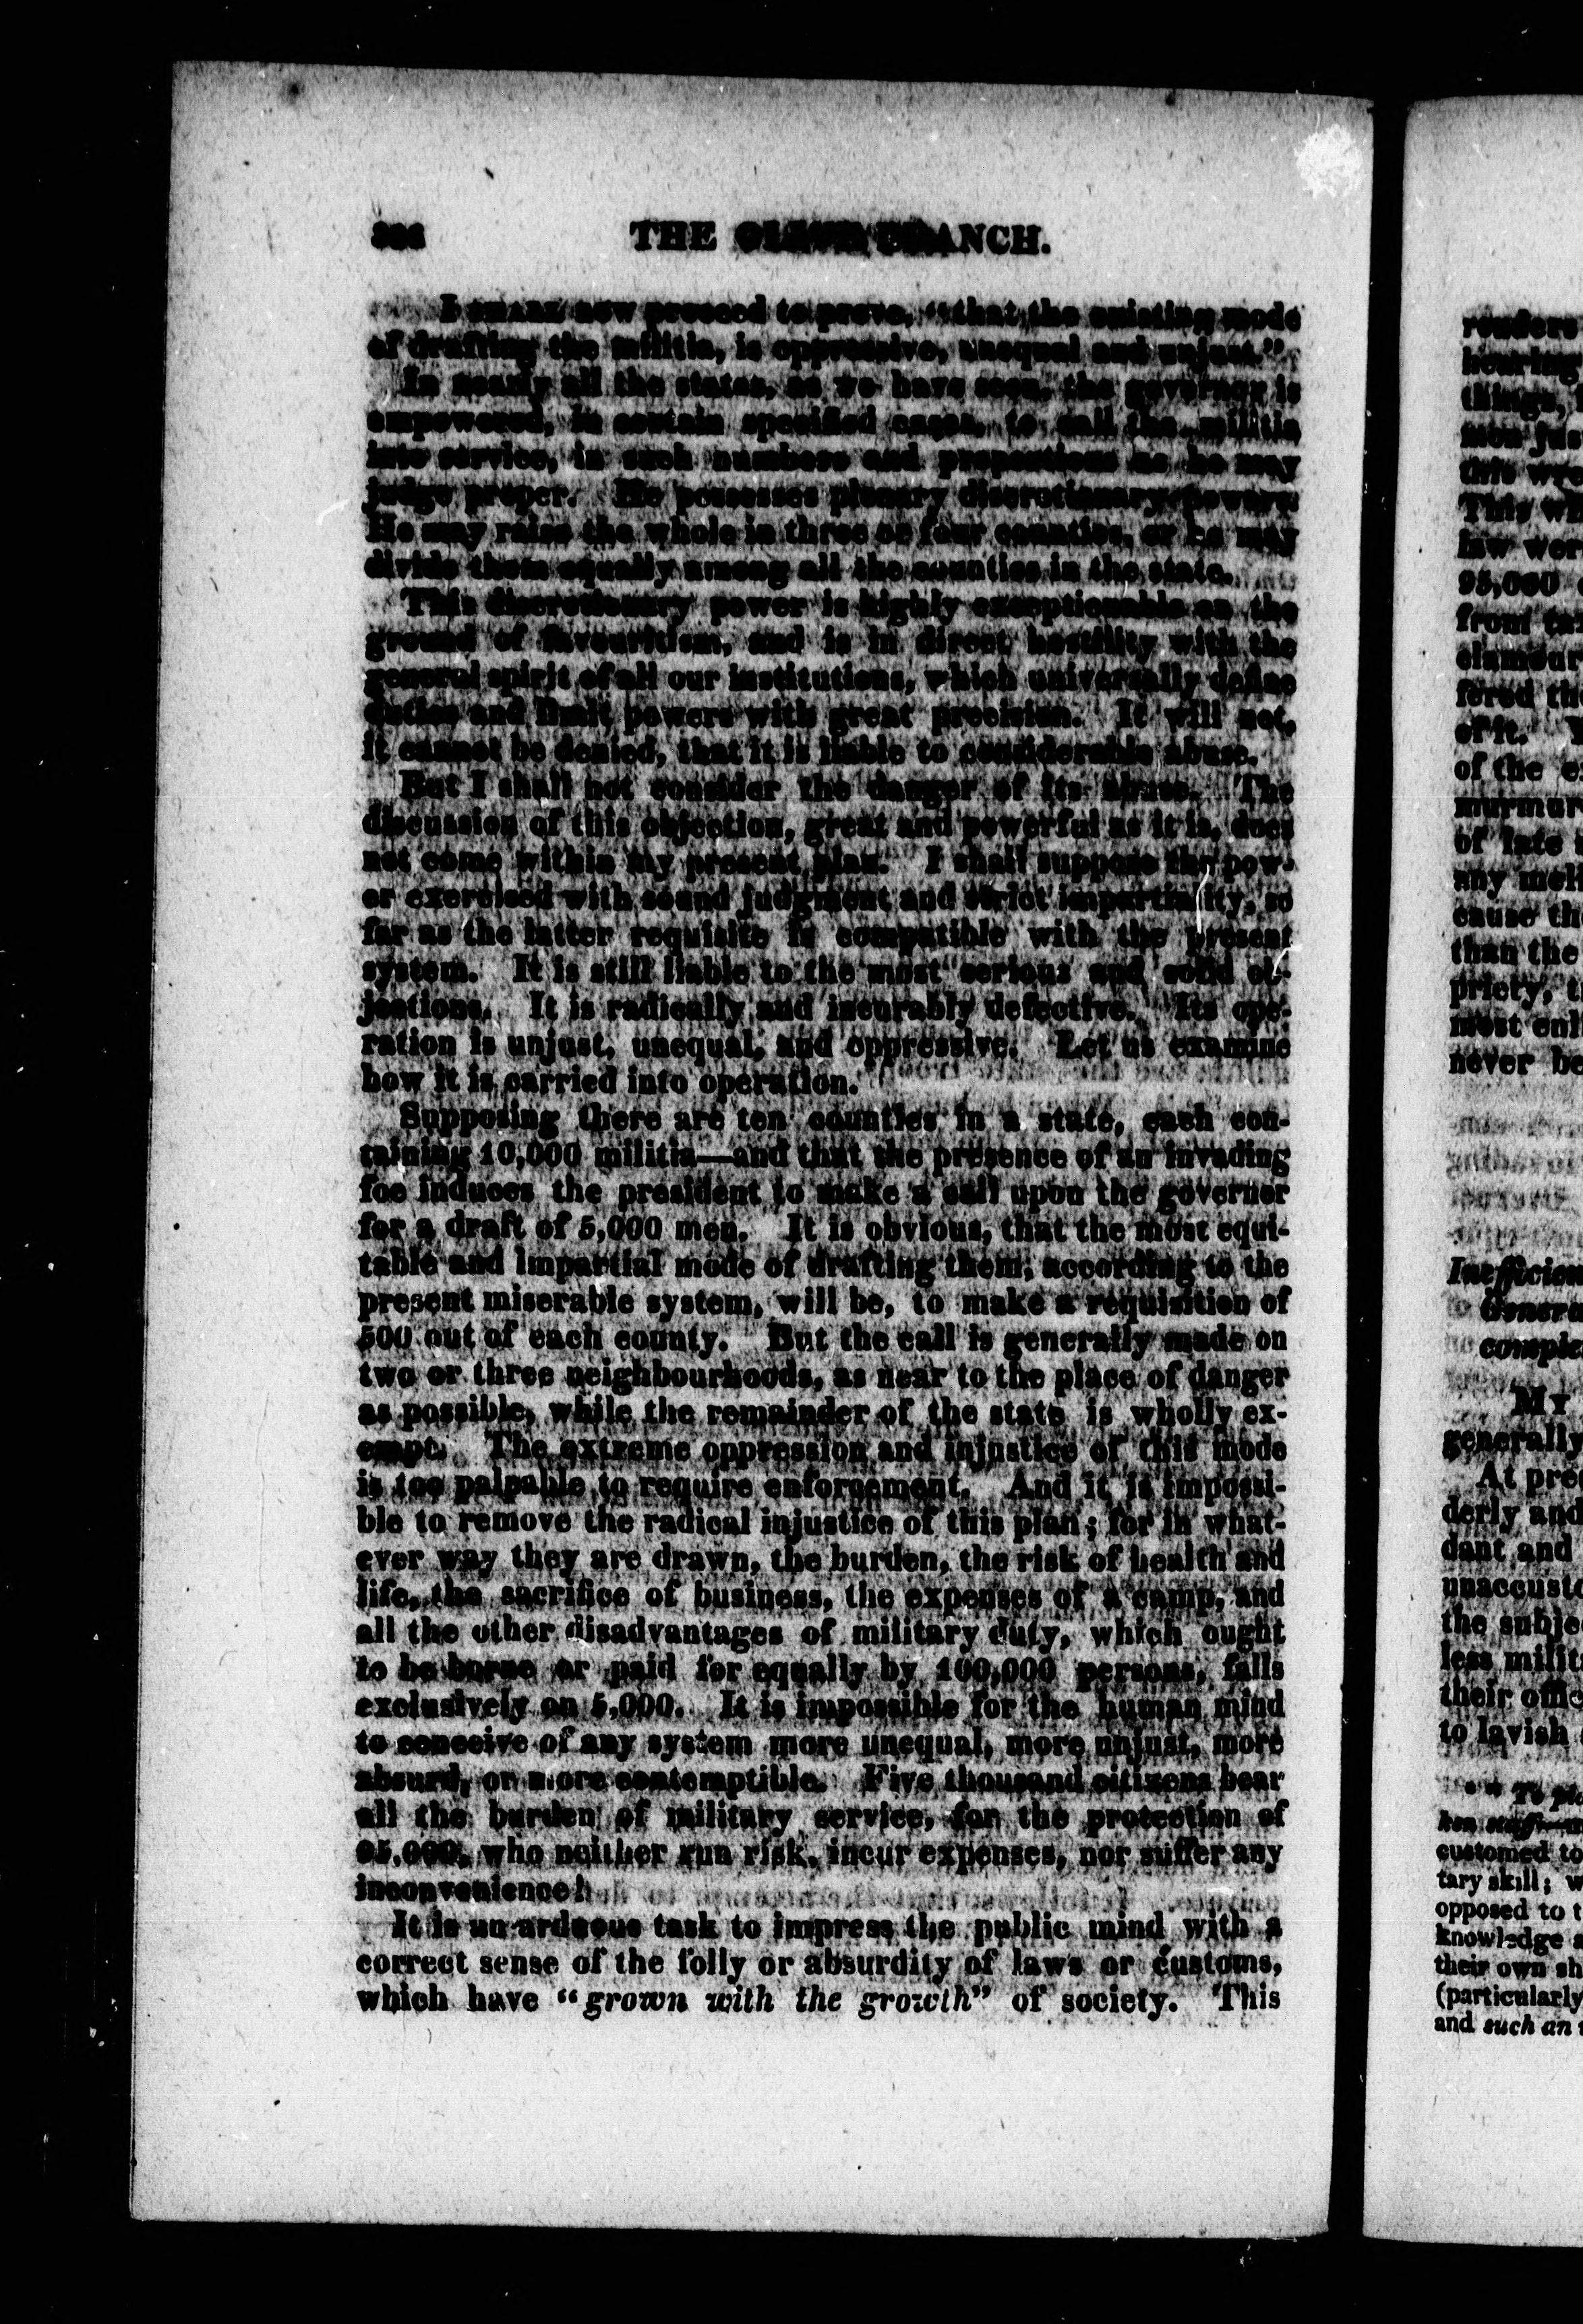 THE OLIVE BRANCH.
I SHALL now proceed to prove, "that the existing mode
of drafting the militia, is oppressive, unequal and unjust."
In nearly all the states, as we have seen, the governor is
empowered, in certain specified cases, to call the militia
into service, in such numbers and proportions as he may
judge proper. He possesses plenary discretionary powers.
He may raise the whole in three or four counties, or he may
divide them equally among all the counties in the state.
This discretionary power is highly exceptionable on the
ground of favouritism, and is in direct hostility with the
general spirit of all our institutions, which universally define
duties and limit powers with great precision. It will not,
it cannot be denied, that it is liable to considerable abuse.
But I shall not consider the danger of its abuse. The
discussion of this objection, great and powerful as it is, does
not come within my present plan. I shall suppose the pow-
er exercised with sound judgment and strict impartiality, so
far as the latter requisite is compatible with the present
system. It is still liable to the most serious and solid ob-
jections. It is radically and incurably defective. Its ope-
ration is unjust, unequal, and oppressive. Let us examine
how it is carried into operation.
Supposing there are ten counties in a state, each con-
taining 10,000 militia—and that the presence of an invading
foe induces the president to make a call upon the governor
for a draft of 5,000 men. It is obvious, that the most equi-
table and impartial mode of drafting them, according to the
present miserable system, will be, to make a requisition of
500 out of each county. But the call is generally made on
two or three neighbourhoods, as near to the place of danger
as possible, while the remainder of the state is wholly ex-
empt. The extreme oppression and injustice of this mode
is too palpable to require enforcement. And it is impossi-
ble to remove the radical injustice of this plan; for in what-
ever way they are drawn, the burden, the risk of health and
life, the sacrifice of business, the expenses of a camp, and
all the other disadvantages of military duty, which ought
to be borne or paid for equally by 100,000 persons, falls
exclusively on 5,000. It is impossible for the human mind
to conceive of any system more unequal, more unjust, more
absurd, or more contemptible. Five thousand citizens bear
all the burden of military service, for the protection of
95,000, who neither run risk, incur expenses, nor suffer any
inconvenience!
It is an arduous task to impress the public mind with a
correct sense of the folly or absurdity of laws or customs,
which have "grown with the growth" of society. This
renders
hearing
things,
this
This
law wer
95,000
from
clamour
fered th
of it.
of the
murmur
of late
any
cause th
than the
priety,
most enl
never be
Inefficien
Genera
MY
generally
At pre
derly and
dant and
unaccust
the subje
less milit
their offic
to lavish
customed to
tary skill; w
opposed to t
knowledge
their own sh
(particularly
and such an